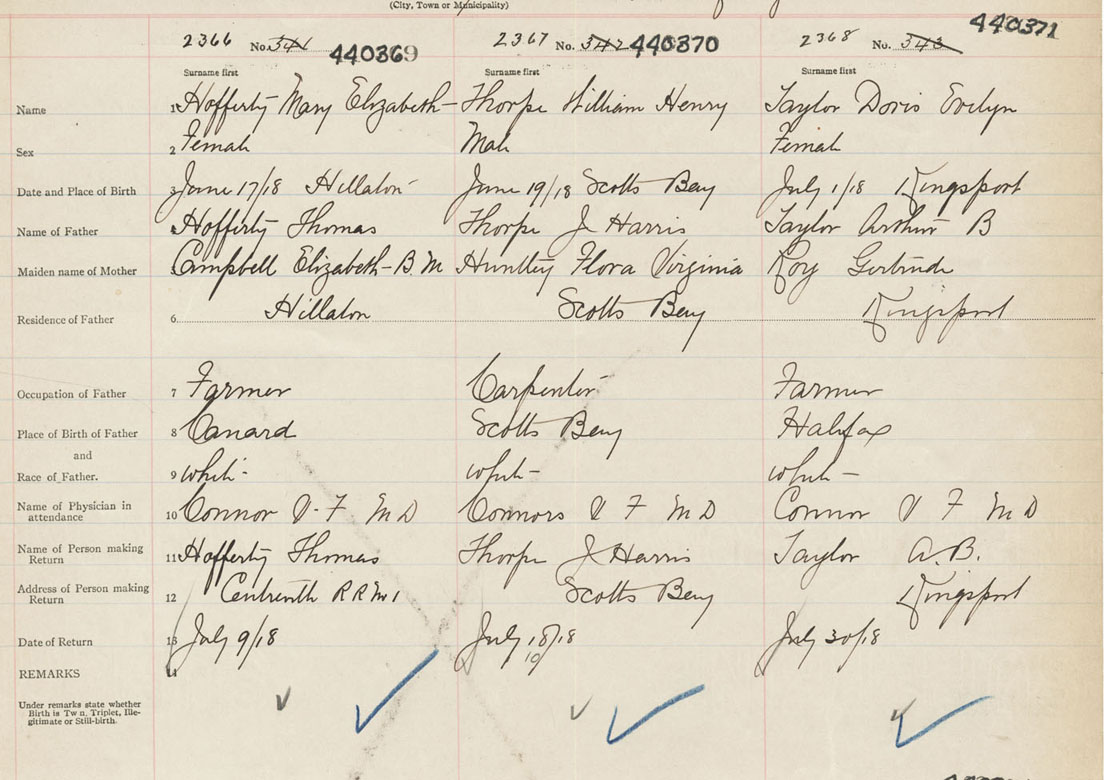 (City, Town or Municipality)
2366 No. 341 440369 2367 No. 342 440370 2368 No. 343 440371
Surname first Surname first Surname first
Name 1 Hofferty Mary Elizabeth Thorpe William Henry Taylor Doris Evelyn
Sex 2 Female Male Female
Date and Place of Birth 3 June 17/18 Hillaton June 19/18 Scotts Bay July 1/18 Kingsport
Name of Father Hofferty Thomas Thorpe J Harris Taylor Arthur B
Maiden name of Mother Campbell Elizabeth B. M Huntley Flora Virginia Roy Gertrude
Residence of Father 6 Hillaton Scotts Bay Kingsport
Occupation of Father 7 Farmer Carpenter Farmer
Place of Birth of Father 8 Canard Scotts Bay Halifax
and
Race of Father. 9 White White White
Name of Physician in
attendance 10 Connor V. F M D Connors V F M D Connor V F M D
Name of Person making
Return 11 Hofferty Thomas Thorpe J Harris Taylor A. B.
Address of Person making
Return 12 R R No 1 Scotts Bay Kingsport
Date of Return 13 July 9/18 July 18/18 July 30/18
10
REMARKS 14
Under remarks state whether
Birth is Tw n, Triplet, Ille-
gitimate or Still-birth.